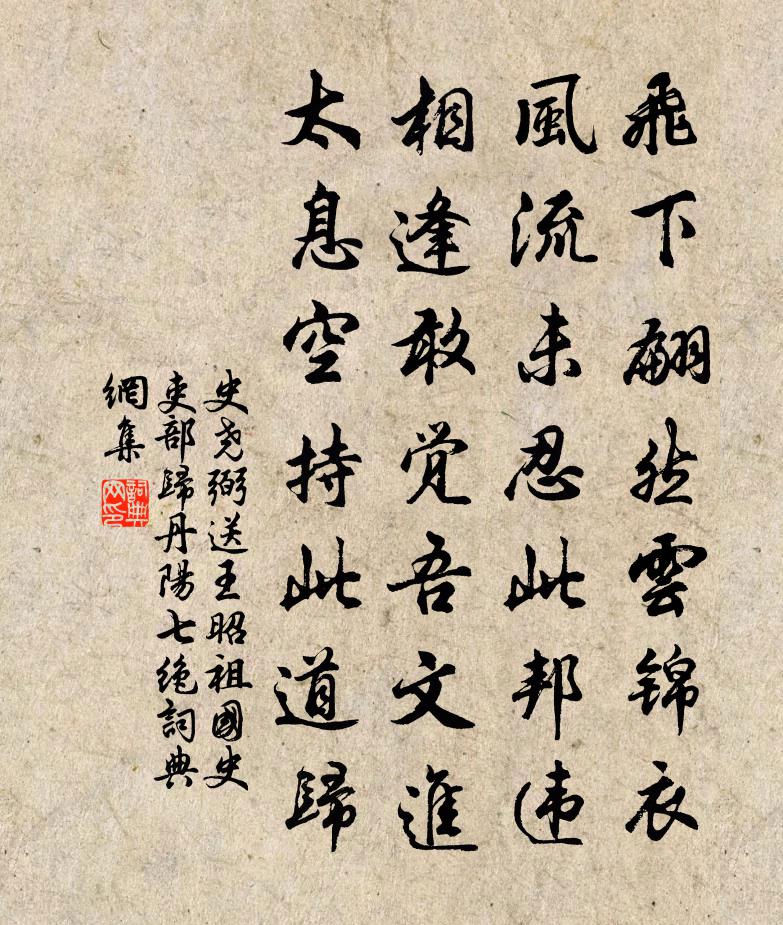 飛下翩然雲錦衣
風流未忍此邦违
相逢敢覚吾文進
太息空持此道歸
史尧弼送王昭祖國史
吏部歸丹陽七絶詞典
網集
詞典
网印